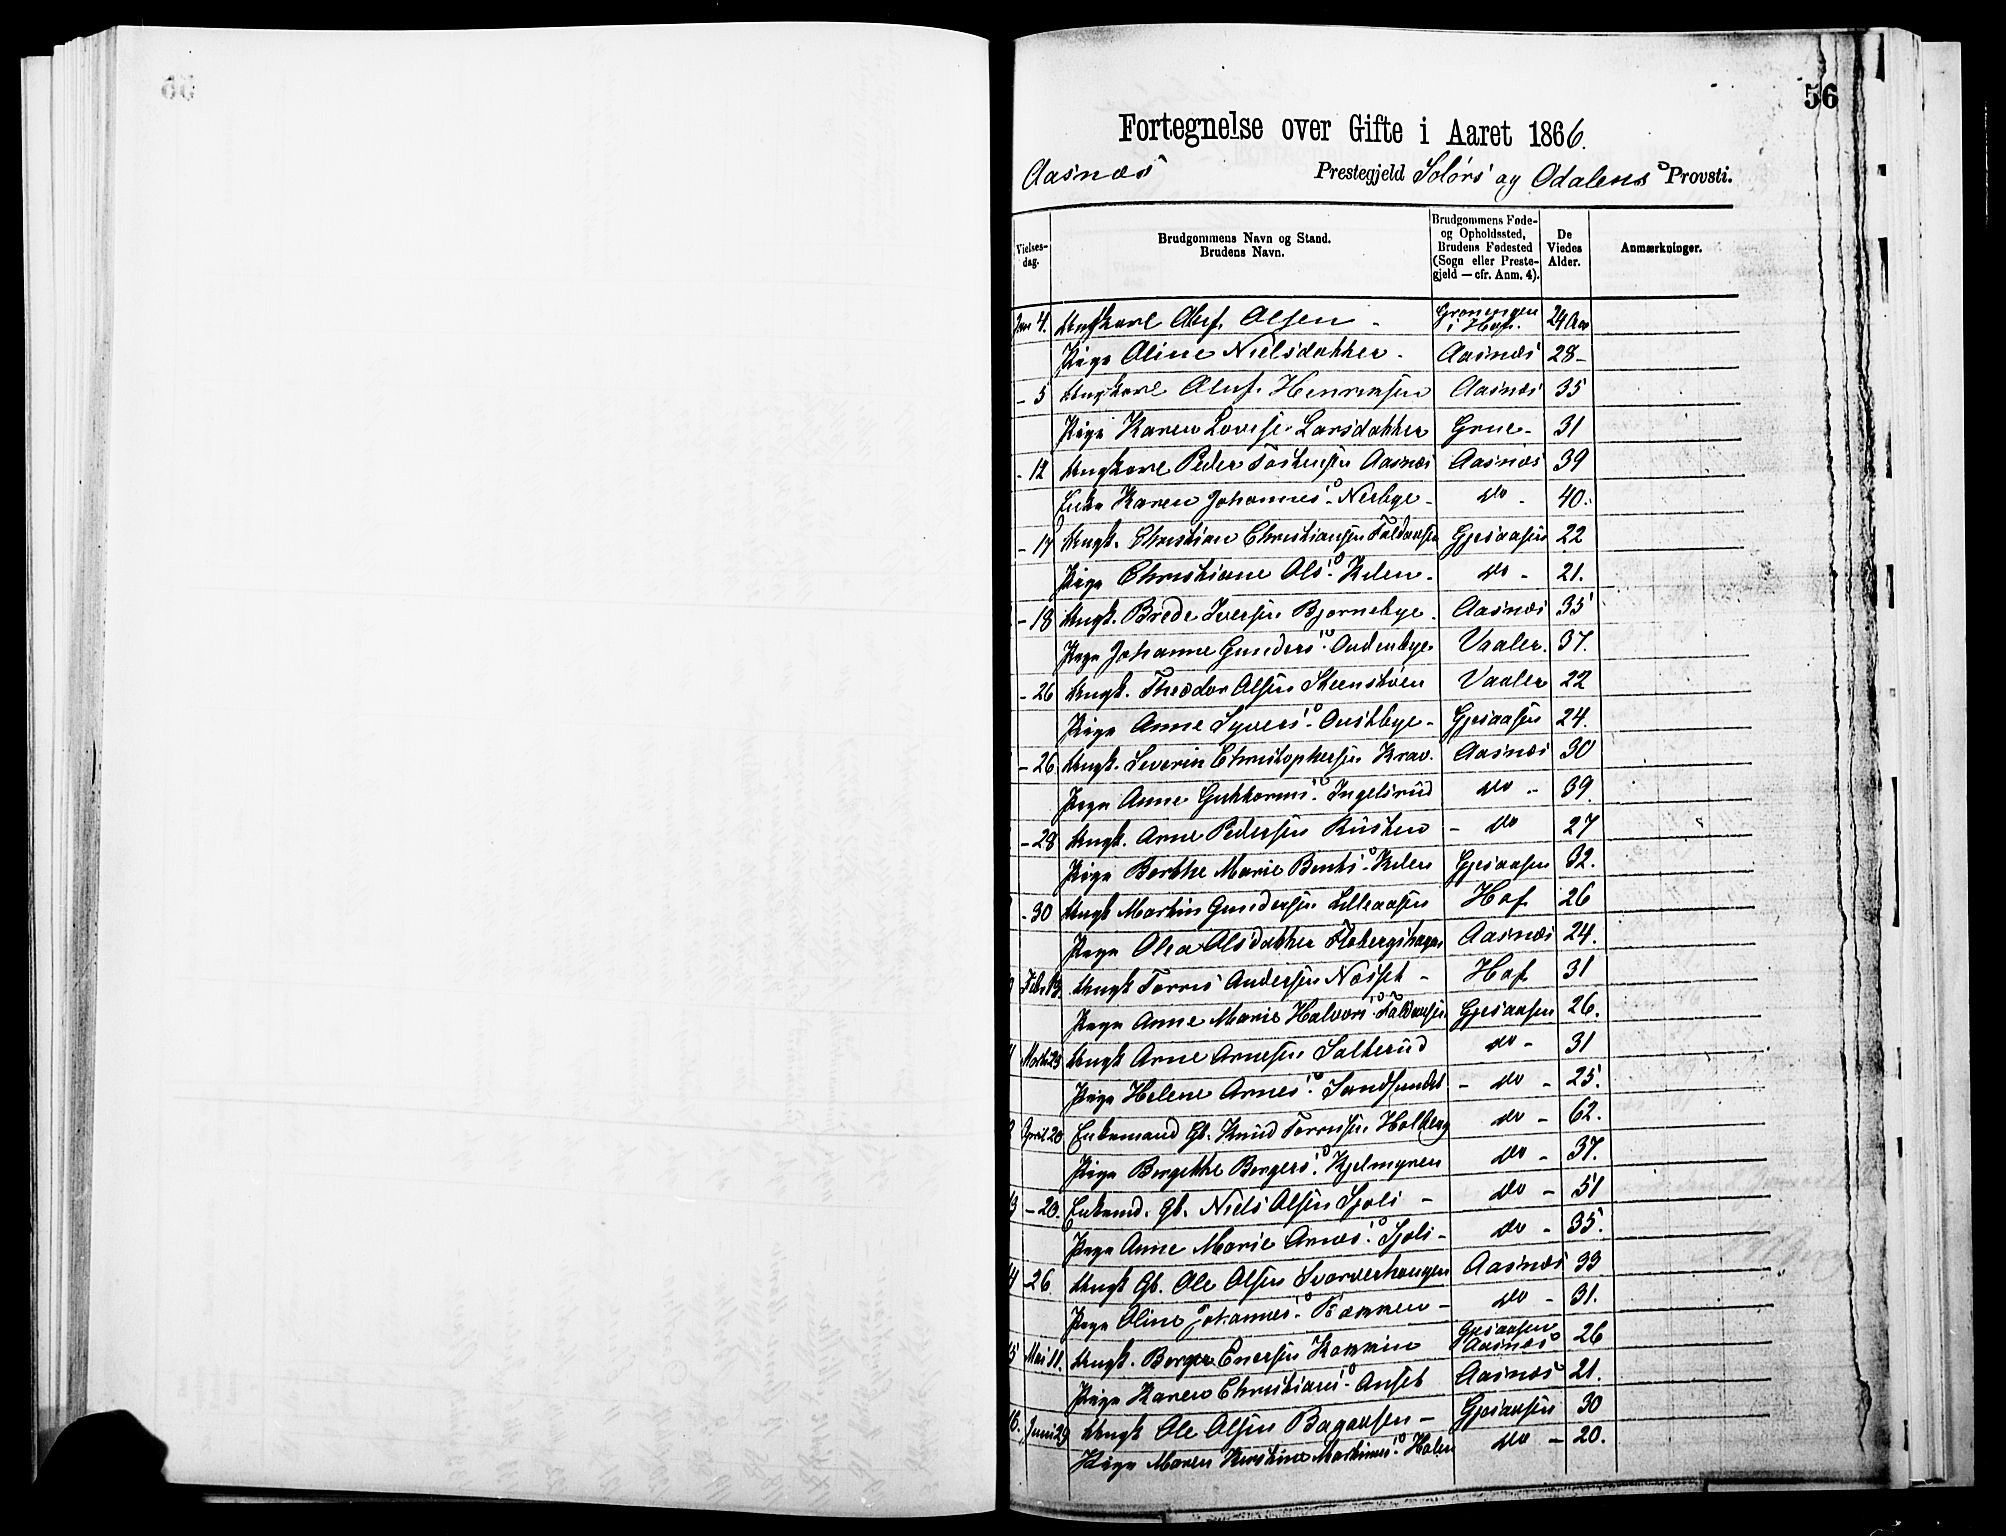 56
Fortegnelse over Gifte i Aaret 1866.
Aasnæs Prestegjeld Solørs og Odalens Provsti.
Vielses-dag. Brudgommens Navn og Stand. Brudens Navn. Brudgommens Føde- og Opholdssted, Brudens Fødested (Sogn eller Preste-gjeld — cfr. Anm. 4). De Viedes Alder. Anmærkninger.
Jan 4. Ungkarl Oluf Olsen - Grøningen i Hof. 24 Aar
Pige Oline Nielsdatter - Aasnæs 28 -
- 5 Ungkarl Oluf Henriksen Aasnæs 35
Pige Karen Lovise Larsdatter Grue - 31
- 12 Ungkarl Peder Tostensen Aasnæs Aasnæs 39
Enke Karen Johannesd. Nerbye - do - 40.
- 17 Ungk. Christian Christiansen Faldaasen Gjesaasen 22
Pige Christiane Olsd. Kilen - do - 21.
- 18 Ungk. Brede Iversen Bjørnebye. Aasnæs 35
Pige Johanne Gundersd. Audenbye Vaaler. 37.
- 26 Ungk. Theodor Olsen Steenstøen Vaaler 22
Pige Anne Syversd. Austbye - Gjesaasen 24.
- 26 Ungk. Severin Christophersen Krav. Aasnæs 30
Pige Anne Guttormsd. Ingelsrud do - 39.
- 28 Ungk. Arne Pedersen Rusten - do 27
Pige Berthe Marie Berntsd. Kilen Gjesaasen 32.
- 30 Ungk Martin Gundersen Lilleaasen Hof 26
Pige Olea Olsdatter Flobergshagen Aasnæs 24.
Febr 13. Ungk Torris Andersen Næsset - Hof 31
Pige Anne Marie Halvorsd. Faldaasen Gjesaasen 26.
Marts 23 Ungk Arne Arnesen Salterud do - 31
Pige Helene Arnesd. Sandsundet - do - 25.
April 20 Enkemand Gb. Knud Torrisen Holtberg do - 62.
Pige Bergitte Bergersd. Kjelmyren do - 37.
13 - 20. Enkemd. Gb. Niels Olsen Sjøli - do - 51
Pige Anne Marie Arnesd. Sjøli - do - 35.
14 26. Ungk Gb. Ole Olsen Svarverhaugen Aasnæs 33
Pige Oline Johannesd. - do - 31.
15 Mai 11. Ungk. Berger Enersen Gjesaasen Aasnæs 26
Pige Karen Christiansd. Anset Aasnæs 21.
16. Juni 29 Ungk Ole Olsen Bagaasen - Gjesaasen 30
Pige Maren Kirstine Martinusd. Holen do - 20.